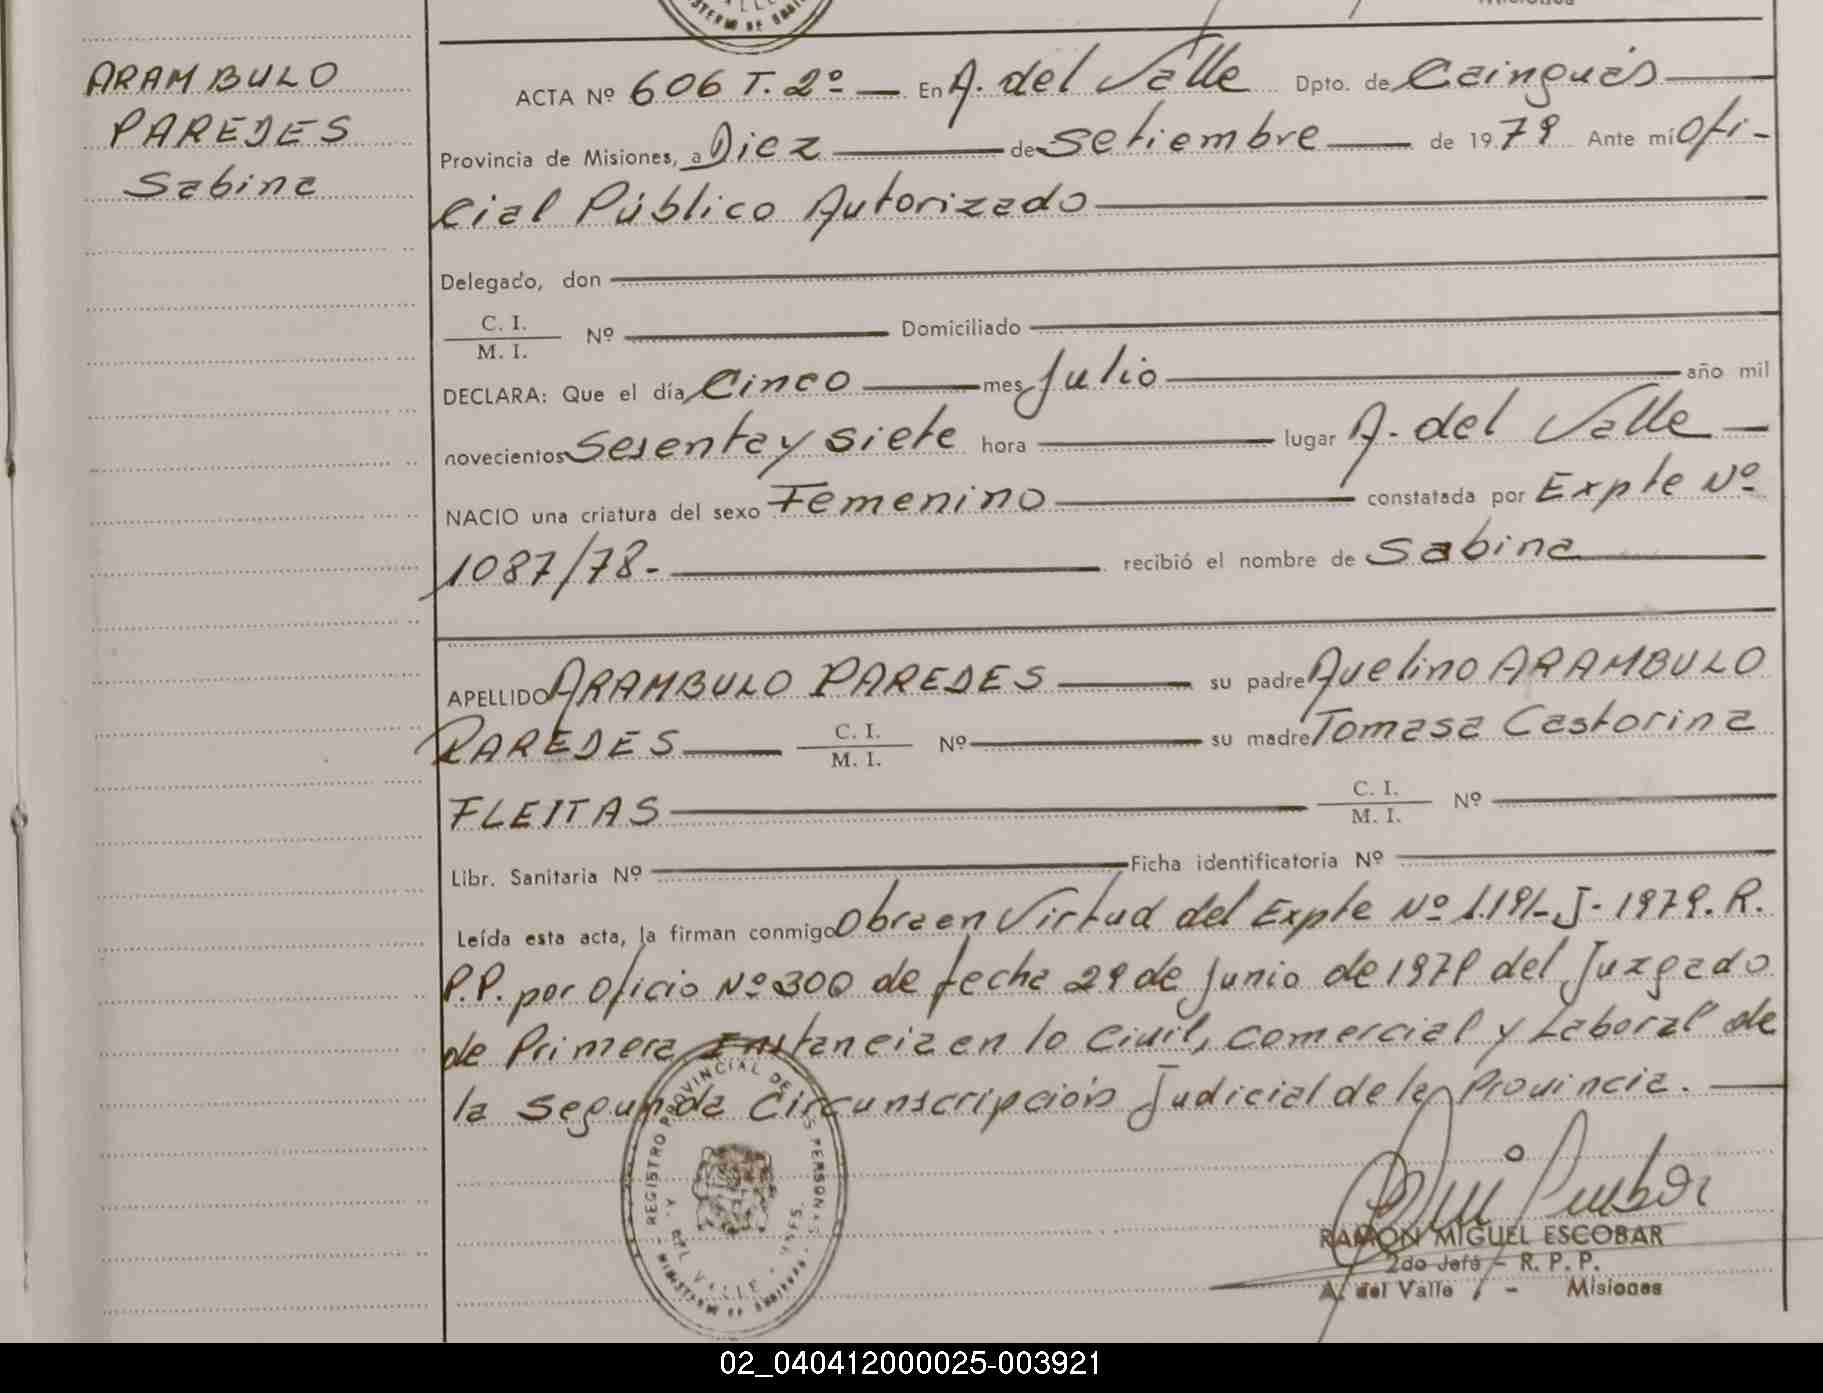 ARAMBULO
PAREDES
Sabina
ACTA Nº 606 T. 2º — En A. del Valle Dpto. de Cainguás
Provincia de Misiones, a Diez de Setiembre de 1979 Ante mí Ofi-
cial Público Autorizado
Delegado, don
C. I.
M. I. Nº Domiciliado
DECLARA: Que el día Cinco mes Julio año mil
novecientos Sesenta y siete hora lugar A. del Valle
NACIO una criatura del sexo Femenino constatada por Expte Nº
1087/78- recibió el nombre de Sabina
APELLIDO ARAMBULO PAREDES su padre Avelino ARAMBULO
PAREDES C. I. M. I. Nº su madre Tomasa Castorina
FLEITAS C. I. M. I. Nº
Libr. Sanitaria Nº Ficha identificatoria Nº
Leída esta acta, la firman conmigo Obra en Virtud del Expte Nº 1.191-J-1979. R.
P.P. por Oficio Nº 300 de fecha 29 de Junio de 1979 del Juzgado
de Primera Instancia en lo Civil, Comercial y Laboral de
la Segunda Circunscripción Judicial de la Provincia.
REGISTRO PROVINCIAL DE LAS PERSONAS
A. DEL VALLE
MINISTERIO DE GOBIERNO
RAMON MIGUEL ESCOBAR
2do Jefe - R. P. P.
A. del Valle - Misiones
02_040412000025-003921